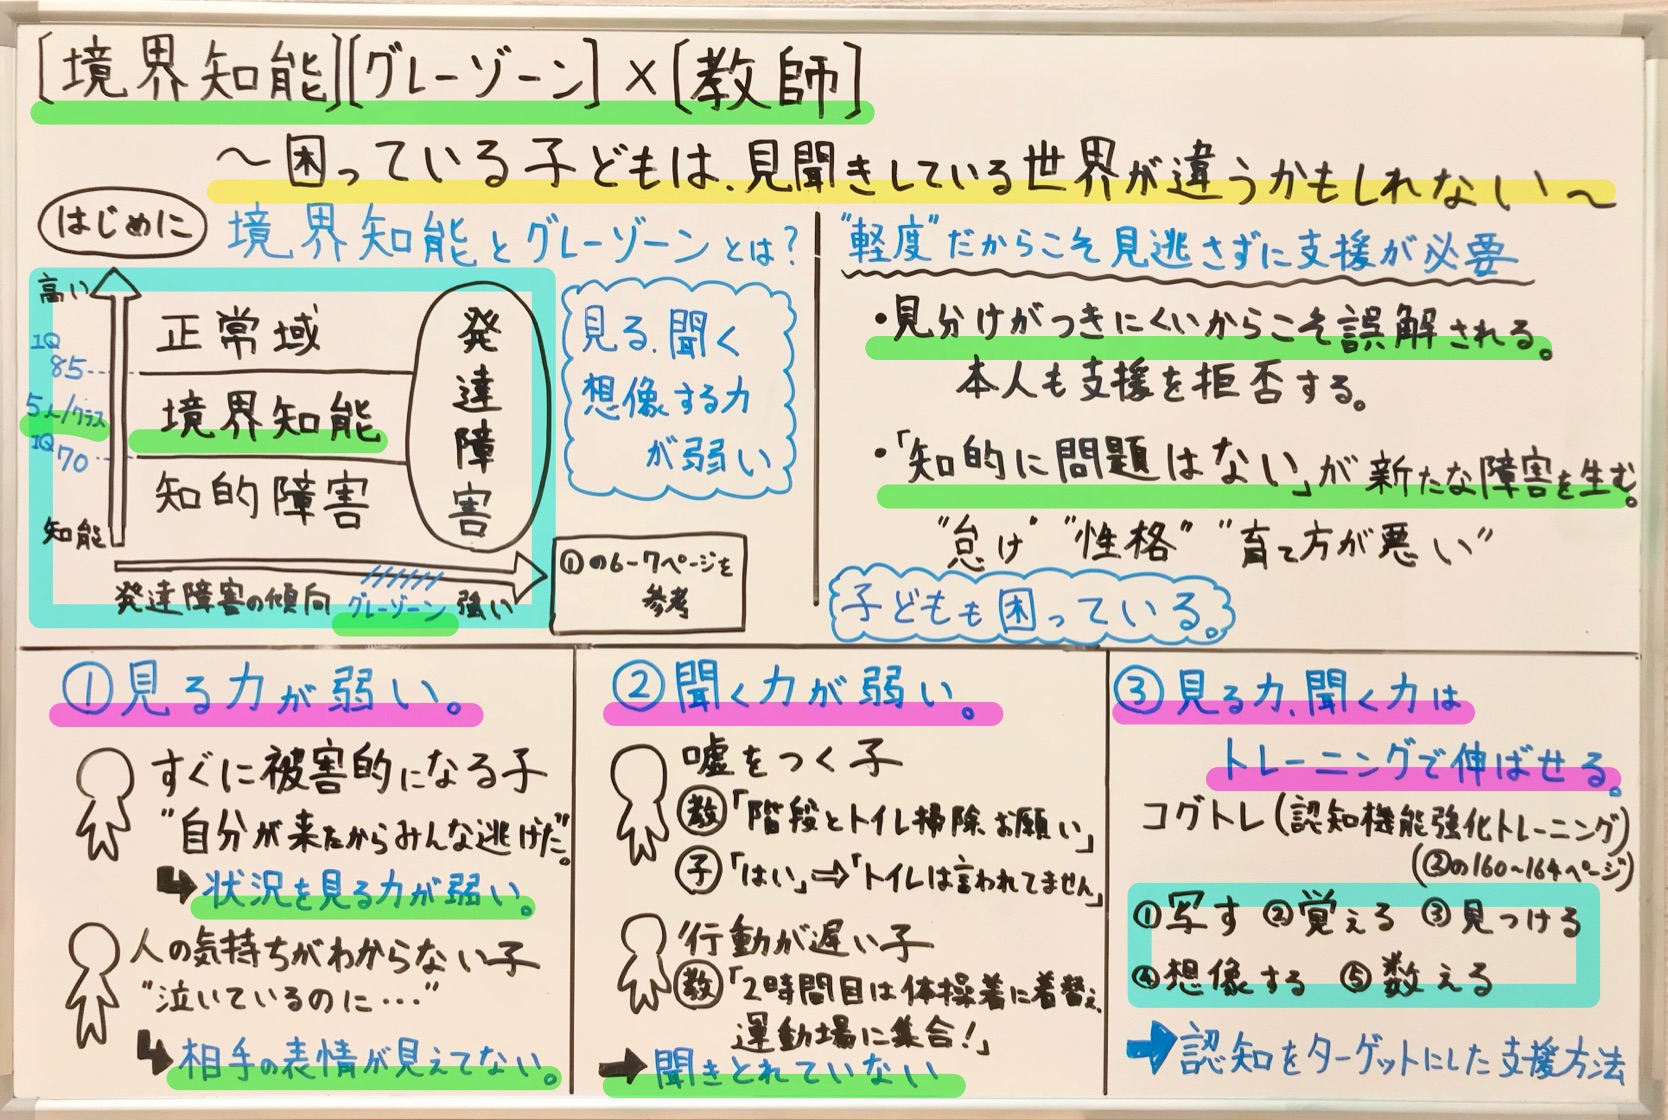 [境界知能][グレーゾーン]×[教師]
～困っている子どもは、見聞きしている世界が違うかもしれない～
はじめに
境界知能とグレーゾーンとは?
高い
IQ
85
5人/クラス
IQ
70
知能
正常域
境界知能
知的障害
発達障害
発達障害の傾向
グレーゾーン
強い
見る、聞く
想像する力
が弱い
①の6-7ページを
参考
"軽度"だからこそ見逃さずに支援が必要
・見分けがつきにくいからこそ誤解される。
本人も支援を拒否する。
・「知的に問題はない」が新たな障害を生む。
"怠け" "性格" "育て方が悪い"
子どもも困っている。
①見る力が弱い。
すぐに被害的になる子
"自分が来たからみんな逃げた"。
状況を見る力が弱い。
人の気持ちがわからない子
"泣いているのに…"
相手の表情が見えてない。
②聞く力が弱い。
嘘をつく子
教「階段とトイレ掃除お願い」
子「はい」⇒「トイレは言われてません」
行動が遅い子
教「2時間目は体操着に着替え、
運動場に集合!」
➡聞きとれていない
③見る力、聞く力は
トレーニングで伸ばせる。
コグトレ(認知機能強化トレーニング)
(②の160~164ページ)
①写す ②覚える ③見つける
④想像する ⑤数える
➡認知をターゲットにした支援方法